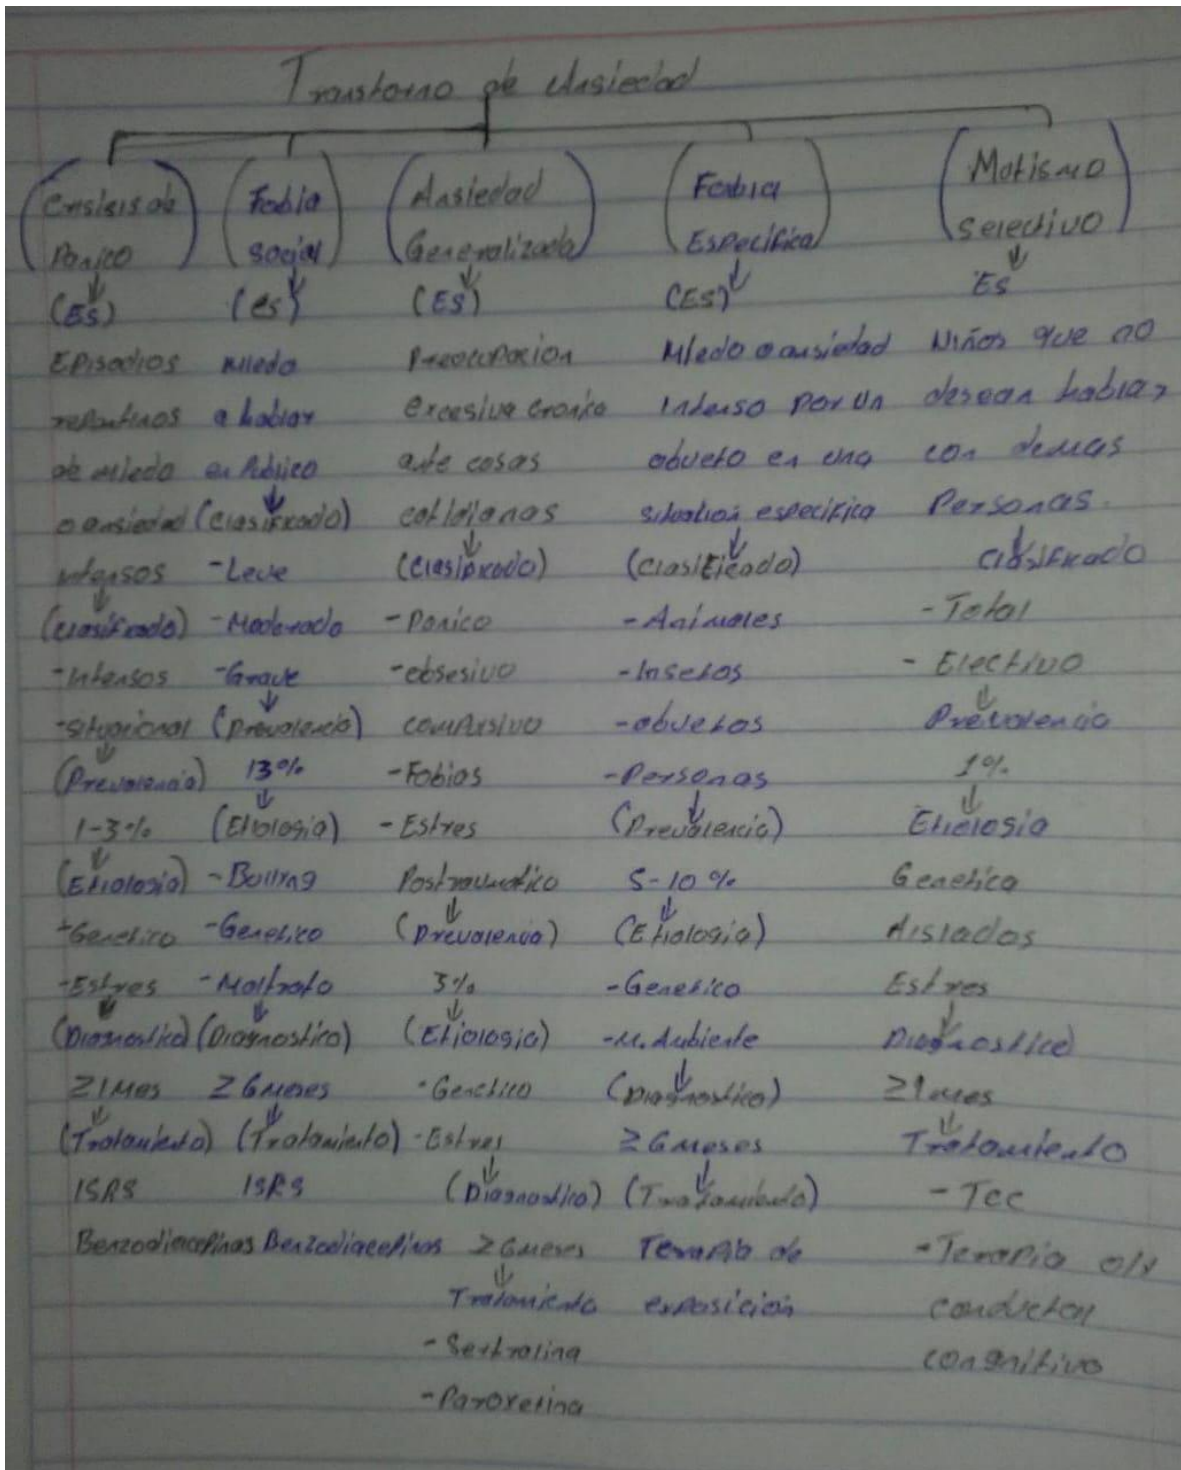 Transtorno de Ansiedad
(Crisis de
Panico)
(Es)
Episodios
repentinos
de miedo
o ansiedad
intensos
(Clasificado)
-Intensos
-Situacional
(Prevalencia)
1-3%
(Etiologia)
-Genetico
-Estres
(Diagnostico)
≥1Mes
(Tratamiento)
ISRS
Benzodiacepinas
(Fobia
Social)
(es)
miedo
a hablar
en Publico
(Clasificado)
-Leve
-Moderado
-Grave
(Prevalencia)
13%
(Etiologia)
-Genetico
-Maltrato
(Diagnostico)
≥6meses
(Tratamiento)
ISRS
Benzodiacepinas
(Ansiedad
Generalizada)
(Es)
Preocupacion
excesiva cronica
ante cosas
cotidianas
(Clasificado)
-Panico
-obsesivo
compulsivo
-Fobias
-Estres
Postraumatico
(Prevalencia)
3%
(Etiologia)
-Genetico
-Estres
(Diagnostico)
≥6meses
Tratamiento
-Sertralina
-Paroxetina
(Fobia
Especifica)
(Es)
Miedo o ansiedad
Intenso por un
obveto en una
situation especifica
(Clasificado)
-Animales
-Insetos
-obvetos
-Personas
(Prevalencia)
5-10%
(Etiologia)
-Genetico
-M. Ambiente
(Diagnostico)
≥6meses
(Tratamiento)
Terapia de
exposicion
(Motismo
Selectivo)
Es
Niños que no
desean hablar
con demas
Personas.
Clasificado
-Total
-Electivo
Prevalencia
1%
Etiologia
Genetica
Aislados
Estres
Diagnostico
≥1mes
Tratamiento
-Tcc
-Terapia
congnitivo